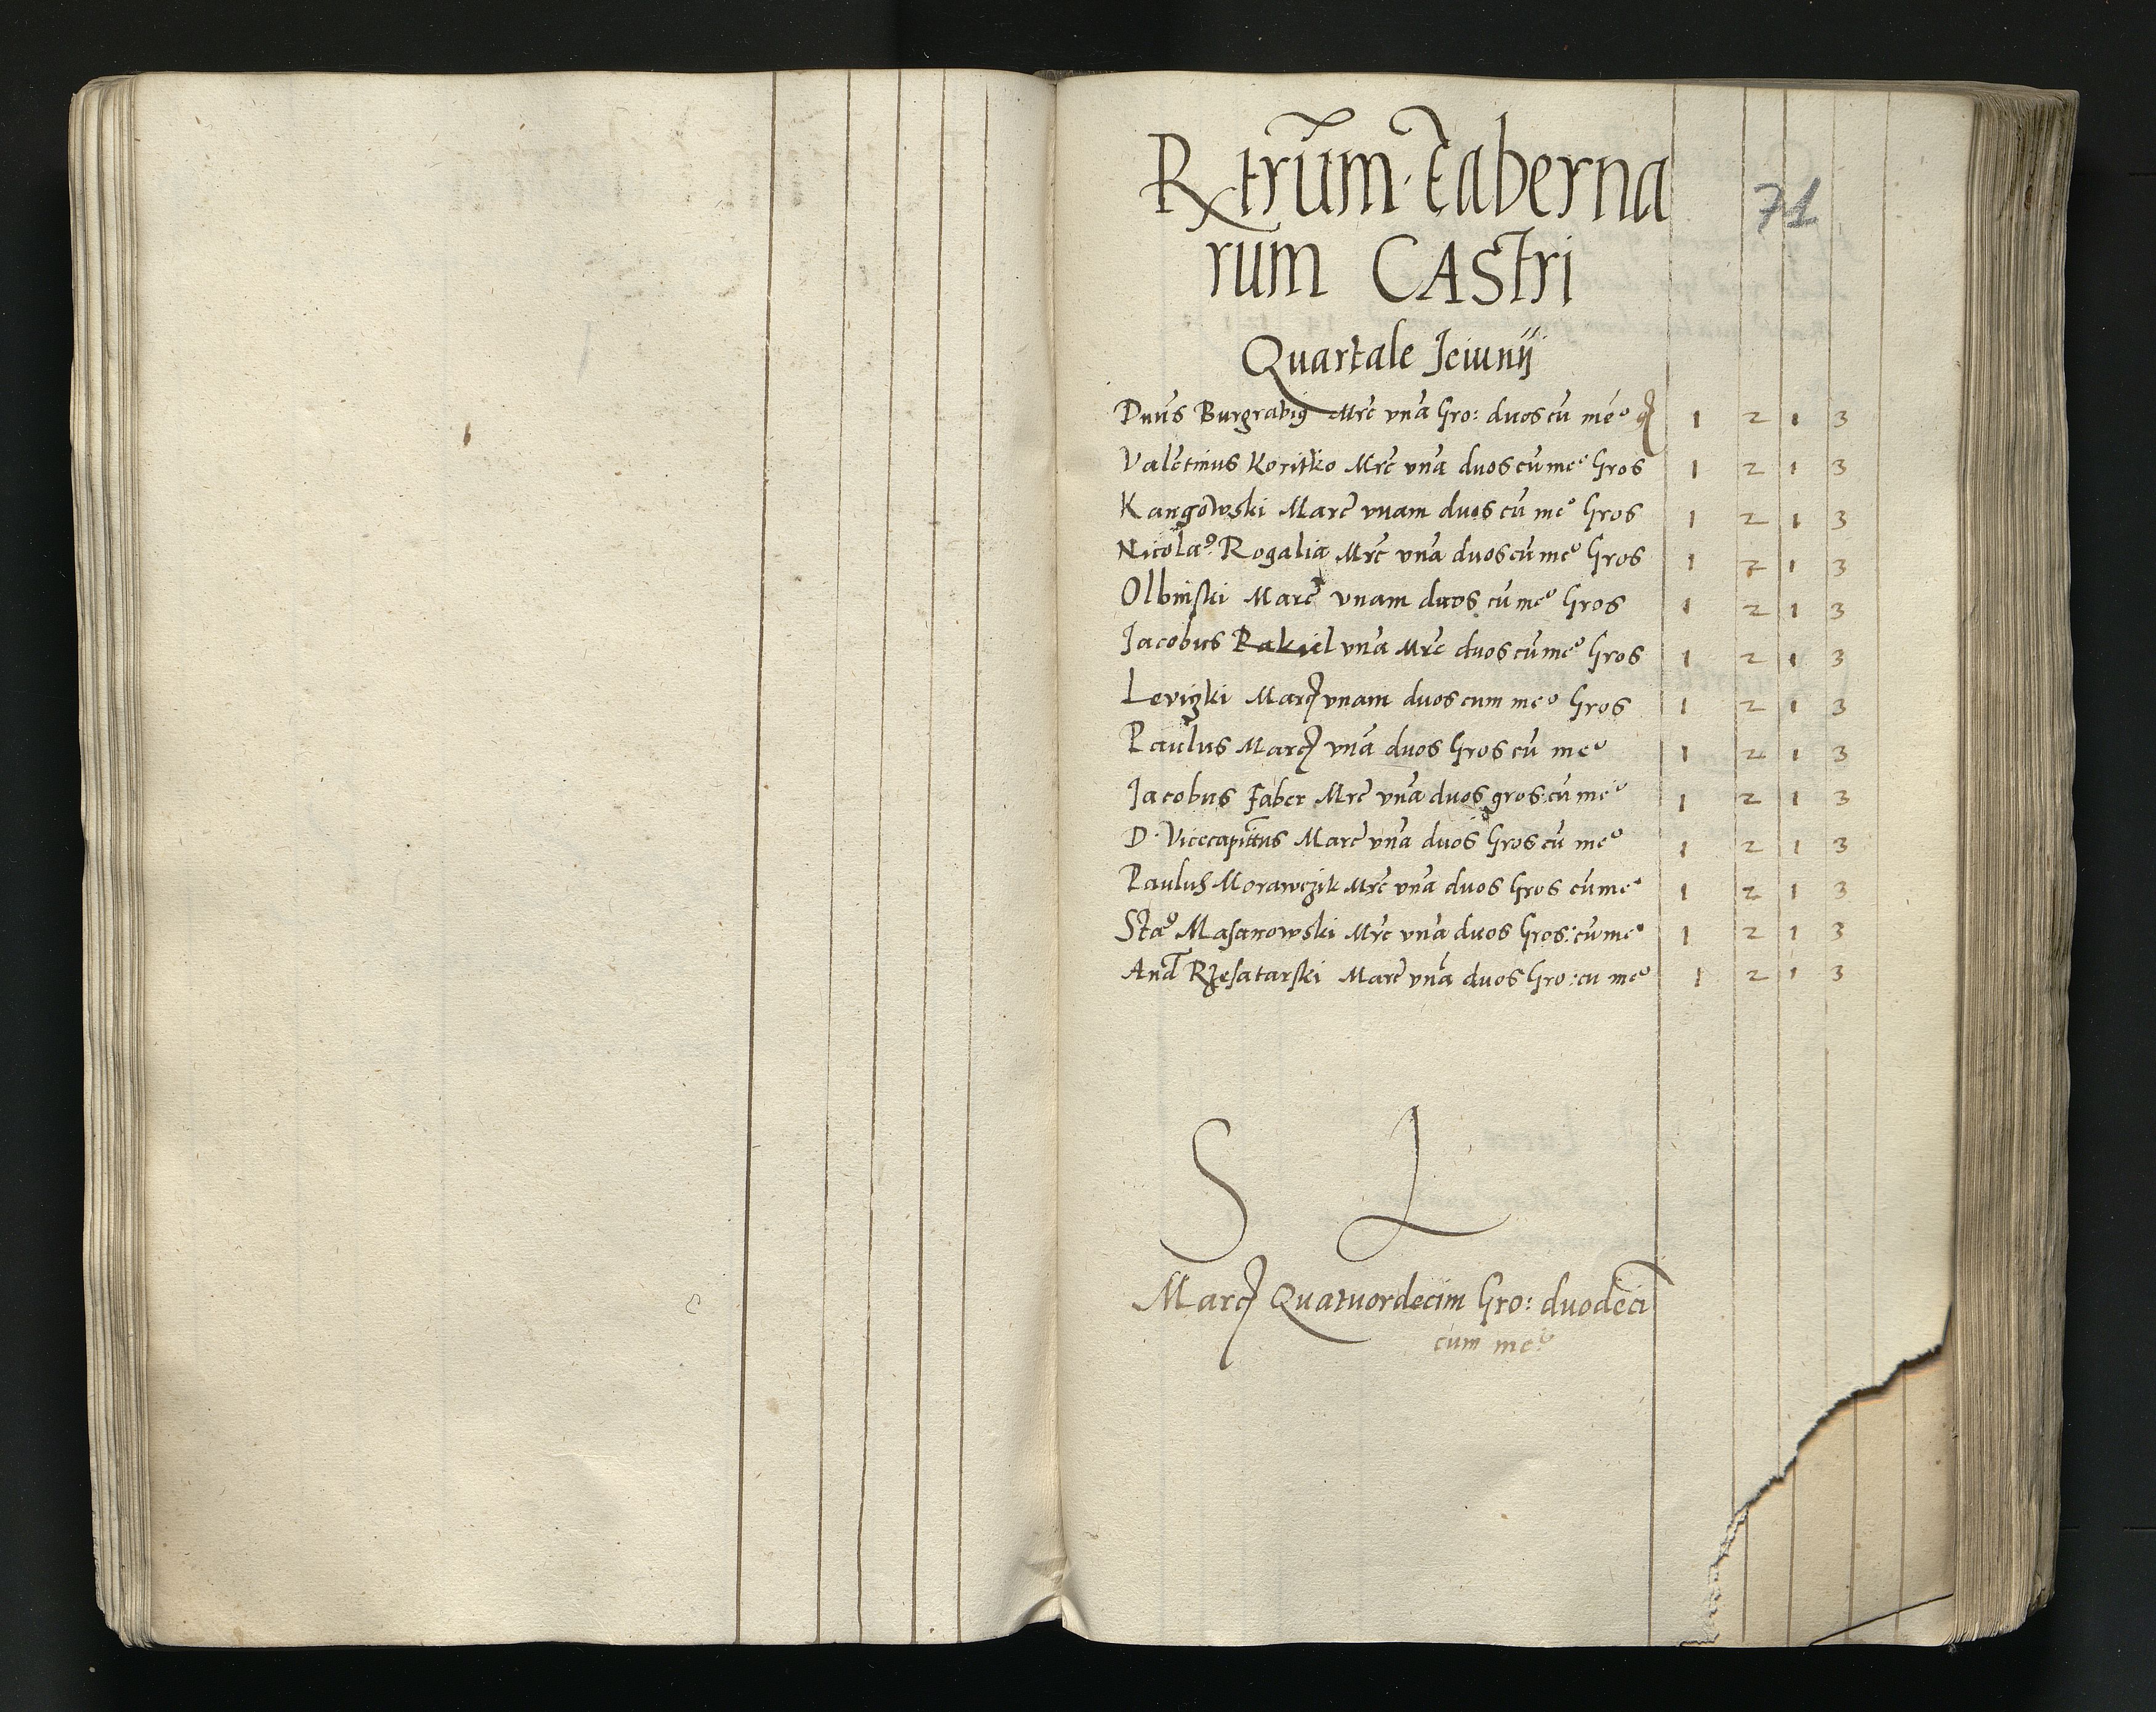 Rtrũm taberna
71
rum CAStri
Quartale Jeiunij
Dnūs Burgrabiꝰ Mrc̄ vnā Gro: duos cū meº 1 2 1 3
Valētinus Koritko Mrc̄ vnā duos cū meº Gros 1 2 1 3
Kangowski Marc̄ vnam duos cū meº Gros 1 2 1 3
Nicolaꝰ Rogalia Mrc̄ vnā duos cū meº Gros 1 2 1 3
Olbinski Marc̄ vnam duos cū meº Gros 1 2 1 3
Jacobus Rakiel vnā Mrc̄ duos cū meº Gros 1 2 1 3
Leviczki Marc vnam duos cum meº Gros 1 2 1 3
Paulus Marc vnā duos Gros cū meº 1 2 1 3
Jacobus Faber Mrc̄ vnā duos gros: cū meº 1 2 1 3
D. Vicecapittus Marc̄ vnā duos Gros cū meº 1 2 1 3
Paulus Morawczik Mrc̄ vnā duos Gros cū meº 1 2 1 3
Staꝰ Masanowski Mrc̄ vnā duos Gros: cū meº 1 2 1 3
And Rzesatarski Marc̄ vnā duos Gro: cu meº 1 2 1 3
S L
Marc Quatuordecim Gro: duodeci
cum meº